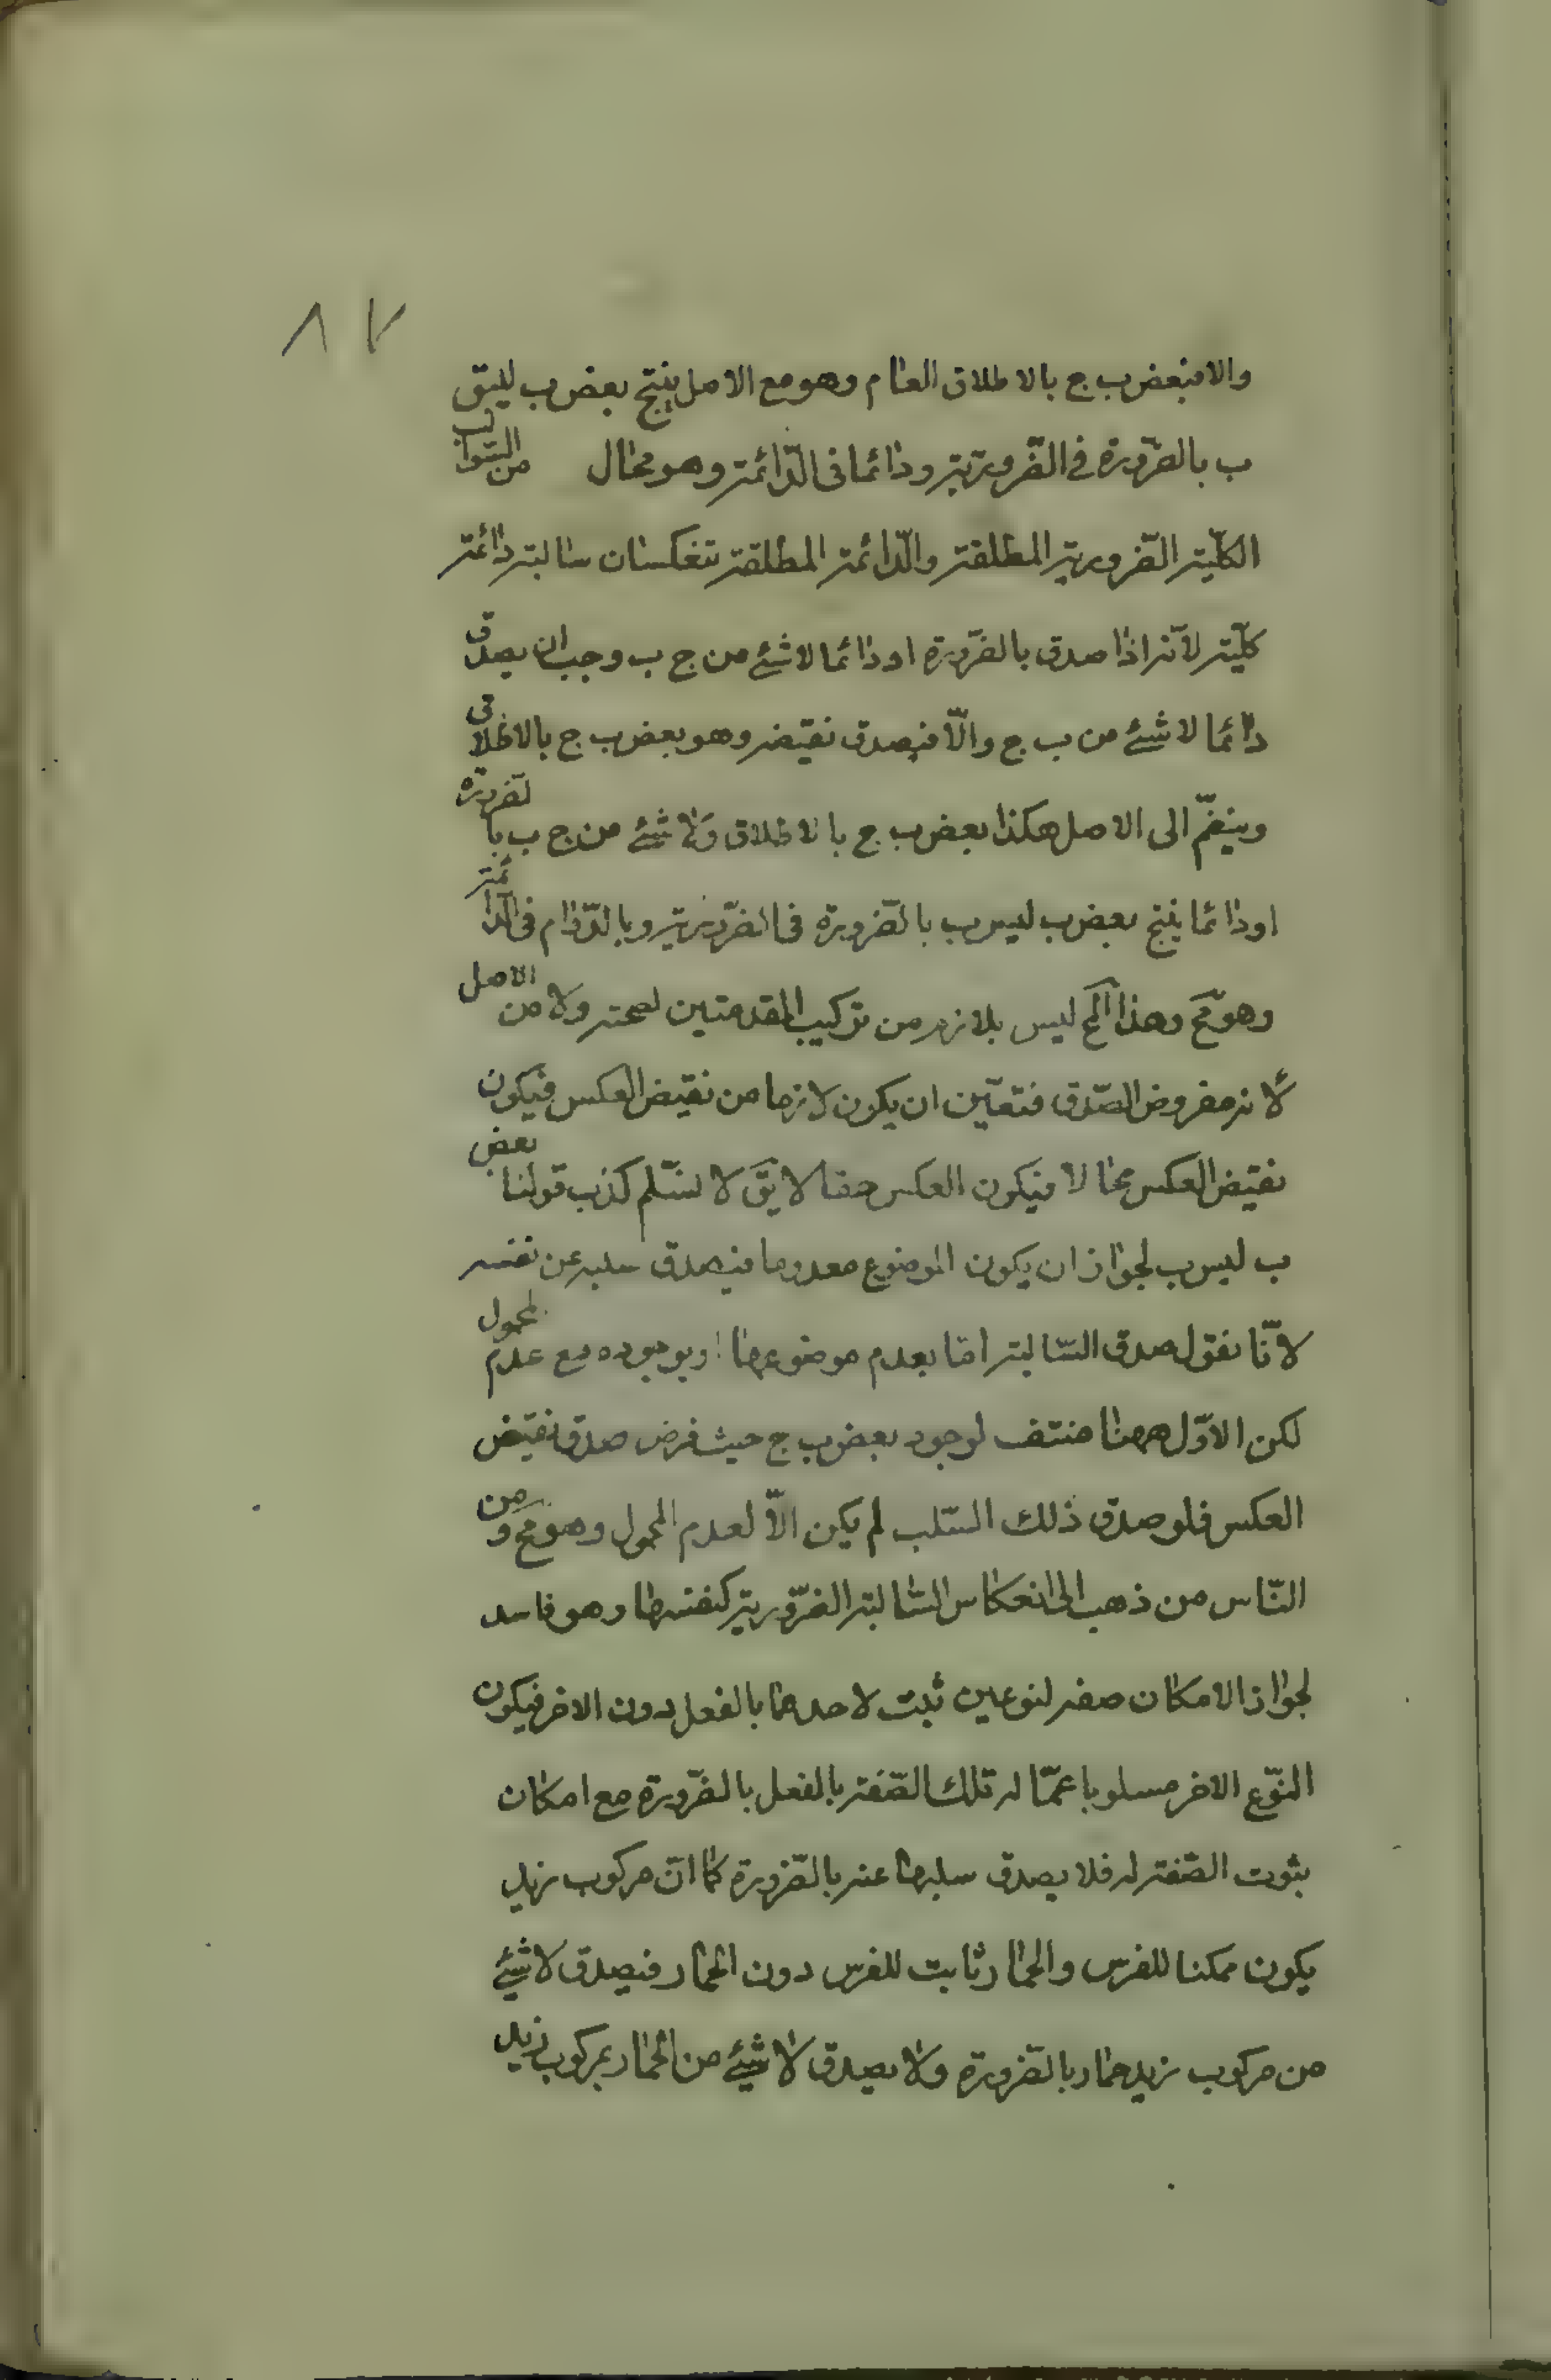 ٨٧
والا فبعض ب ج بالاطلاق العام وهو مع الاصل ينتج بعض ب ليس
ب بالضّرورة فى الضّروريّة ودائما فى الدّائمة وهو محال من السّوالب
الكلّيّة الضّروريّة المطلقة والدّائمة المطلقة تنعكسان سالبة دائمة
كلّيّة لانّه اذا صدق بالضّرورة او دائما لا شئ من ج ب وجب ان يصدق
دائما لا شئ من ب ج والّا فيصدق نقيضه وهو بعض ب ج بالاطلاق
وينضمّ الى الاصل هكذا بعض ب ج بالاطلاق ولا شئ من ج ب بالضرورة
او دائما ينتج بعض ب ليس ب بالضّرورة فى الضّروريّة وبالدّوام فى الدائمة
وهو مح وهذا المح ليس بلازم من تركيب المقدمتين لصحته ولا من الاصل
لانه مفروض الصّدق فتعيّن ان يكون لازما من نقيض العكس فيكون
نقيض العكس محالا فيكون العكس حقا لا يق لا نسّلم كذب قولنا بعض
ب ليس ب لجواز ان يكون الموضوع معدوما فيصدق سلبه عن نفسه
لانّا نقول صدق السّالبة امّا بعدم موضوعها او بوجوده مع عدم المحمول
لكن الاوّل ههنا منتف لوجود بعض ب ج حيث فرض صدق نقيض
العكس فلو صدق ذلك السّلب لم يكن الّا لعدم المحمول وهو مح و من
النّاس من ذهب الى انعكاس السّالبة الضّروريّة كنفسها وهو فاسد
لجواز الامكان صفه لنوعين ثبت لاحدهما بالفعل دون الاخر فيكون
النّوع الاخر مسلوبا عمّا له تلك الصّفة بالفعل بالضّرورة مع امكان
ثبوت الصّفة له فلا يصدق سلبها عنه بالضّرورة كما انّ مركوب زيد
يكون ممكنا للفرس والحمار ثابت للفرس دون الحمار فيصدق لا شئ
من مركوب زيد حمار بالضّرورة ولا يصدق لا شئ من الحمار بمركوب زيد